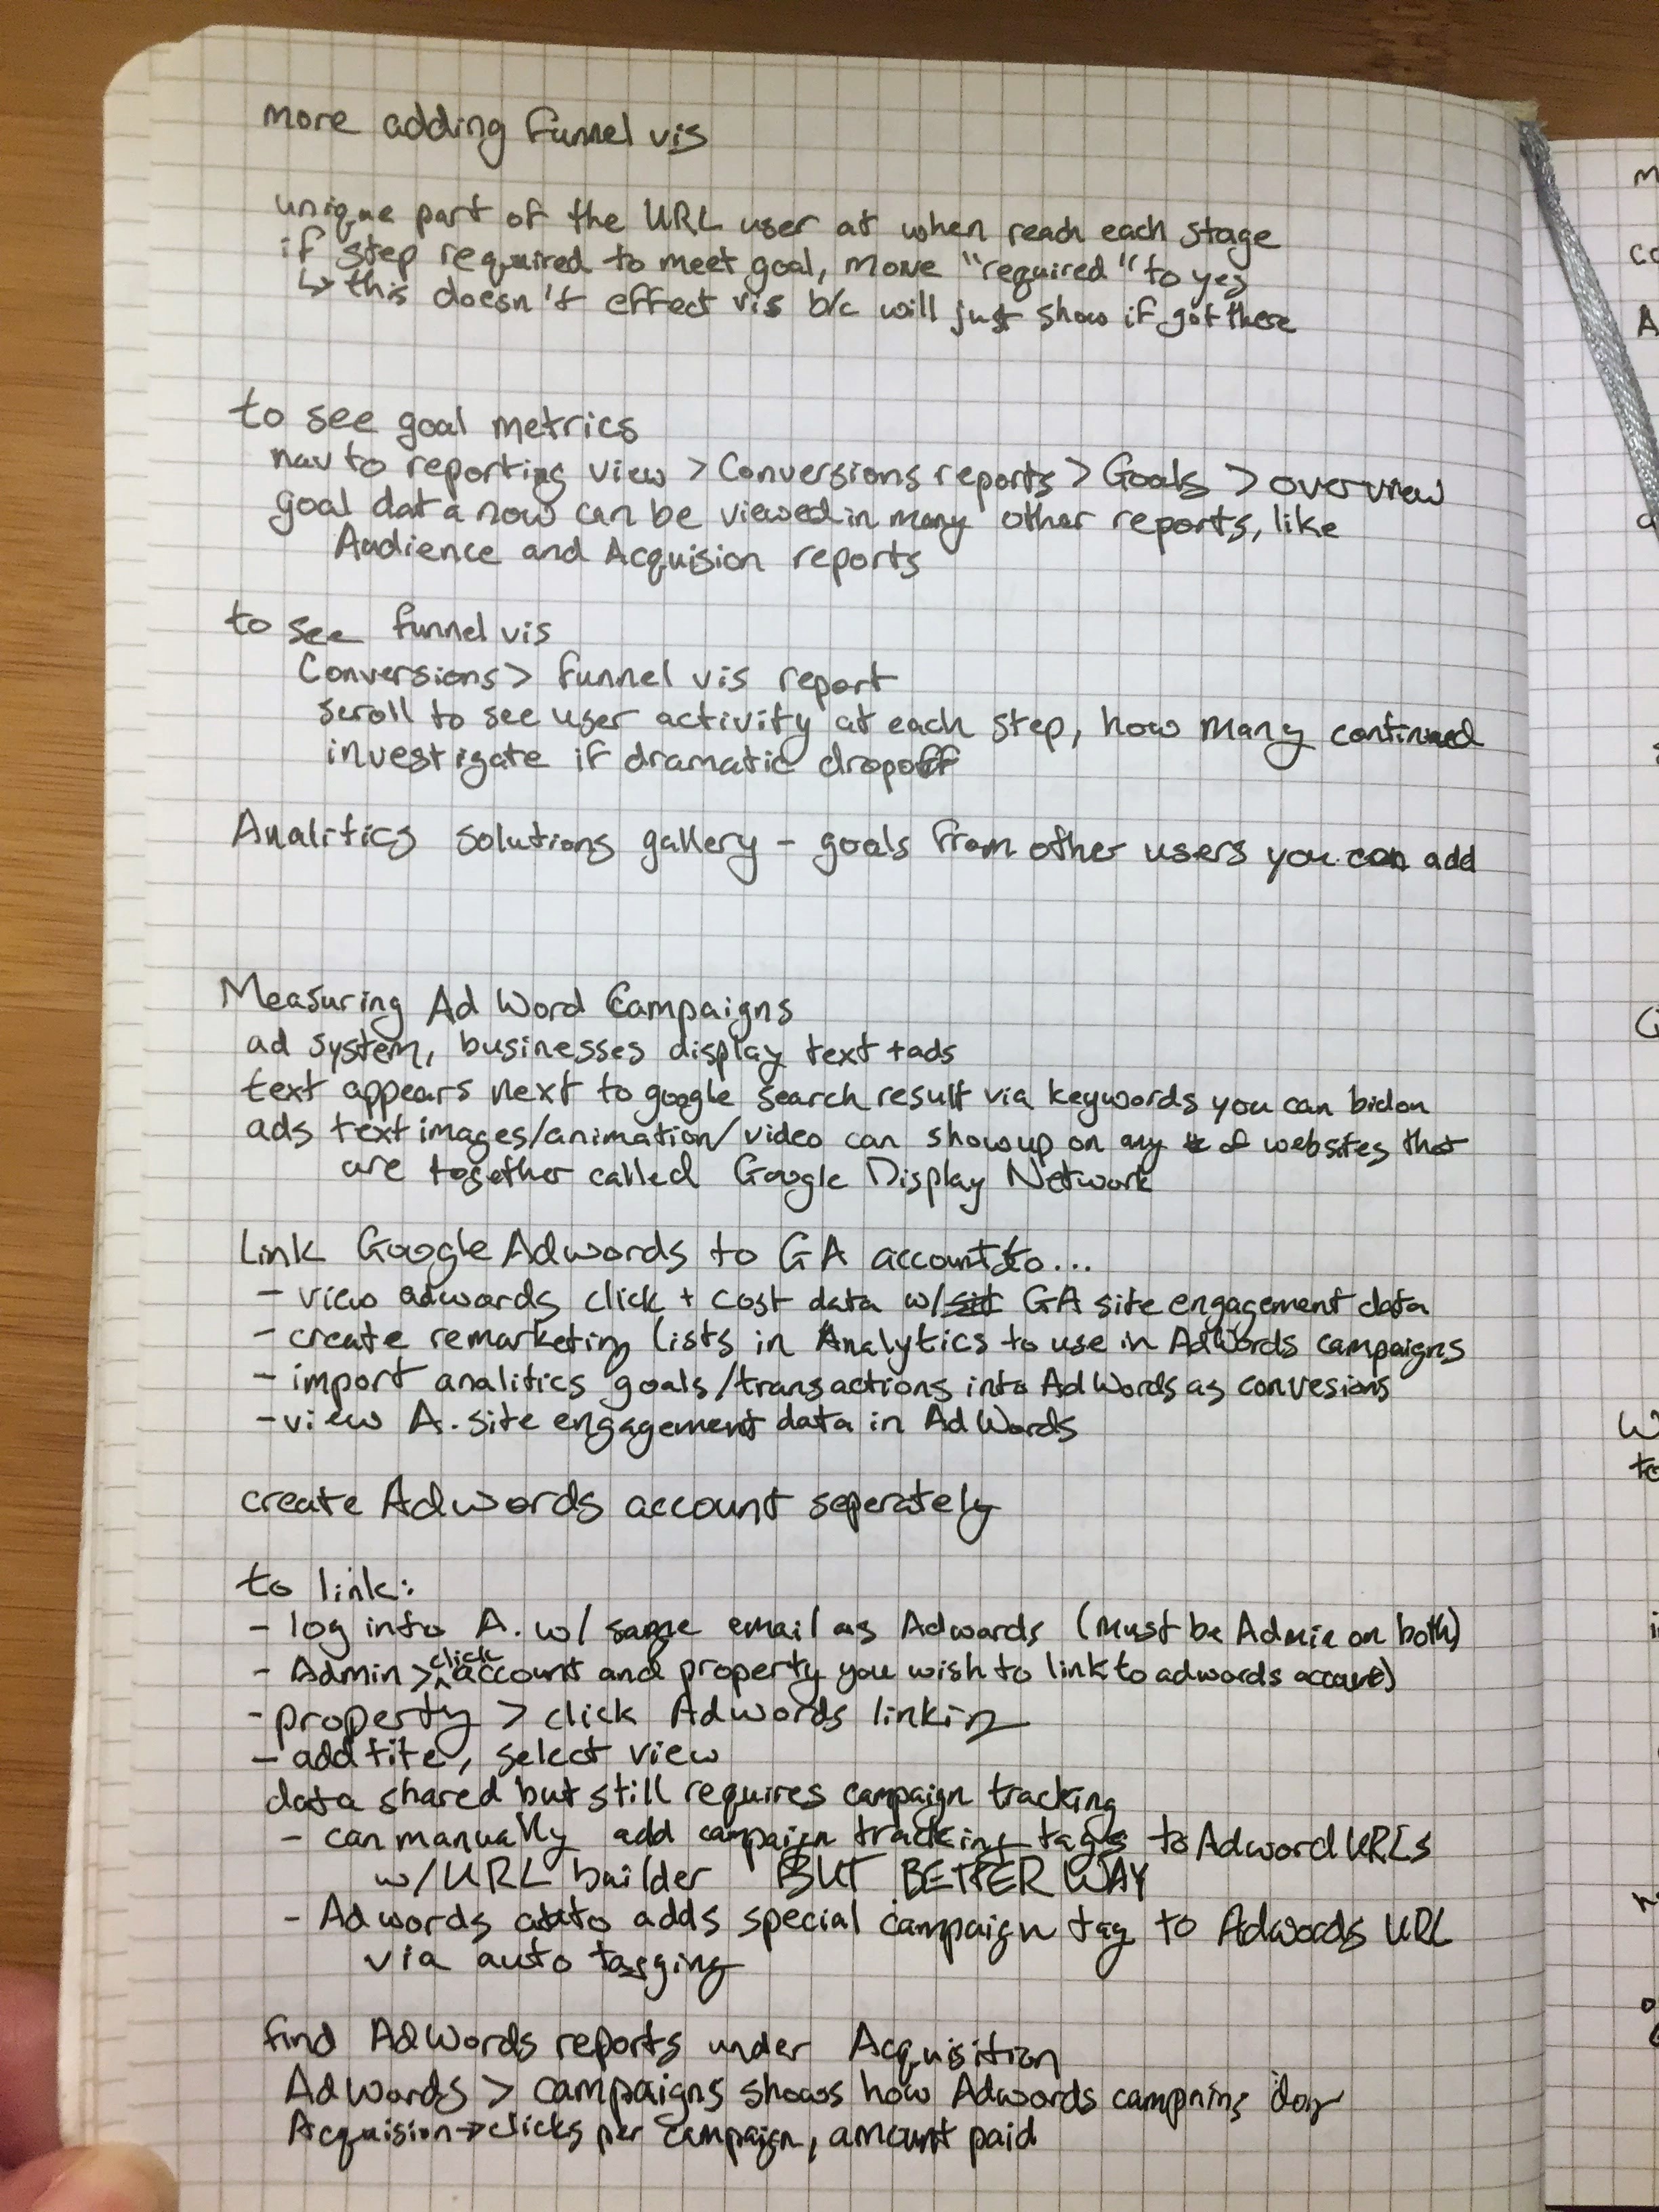 more adding funnel vis
unique part of the URL user at when reach each stage
if step required to meet goal, move "required" to yes
↳ this doesn't effect vis b/c will just show if got there
to see goal metrics
nav to reporting view > Conversions reports > Goals > overview
goal data now can be viewed in many other reports, like
Audience and Acquision reports
to see funnel vis
Conversions > funnel vis report
scroll to see user activity at each step, how many continued
investigate if dramatic dropoff
Analitics solutions gallery - goals from other users you can add
Measuring Ad Word Campaigns
ad system, businesses display text + ads
text appears next to google search result via keywords you can bid on
ads text images/animation/video can show up on any # of websites that
are together called Google Display Network
Link Google Adwords to GA account to...
- view adwords click + cost data w/ GA site engagement data
- create remarketing lists in Analytics to use in AdWords campaigns
- import analitics goals/transactions into AdWords as convesions
- view A. site engagement data in AdWords
create Adwords account seperately
to link:
- log into A. w/ same email as Adwords (must be Admin on both)
- Admin > click account and property you wish to link to adwords account)
- property > click Adwords linking
- add title, select view
data shared but still requires campaign tracking
- can manually add campaign tracking tags to Adword URLs
w/ URL builder BUT BETTER WAY
- Adwords auto adds special campaign tag to Adwords URL
via auto tagging
find AdWords reports under Acquisition
AdWords > campaigns shows how Adwords
Acquision → clicks per campaign, amount paid